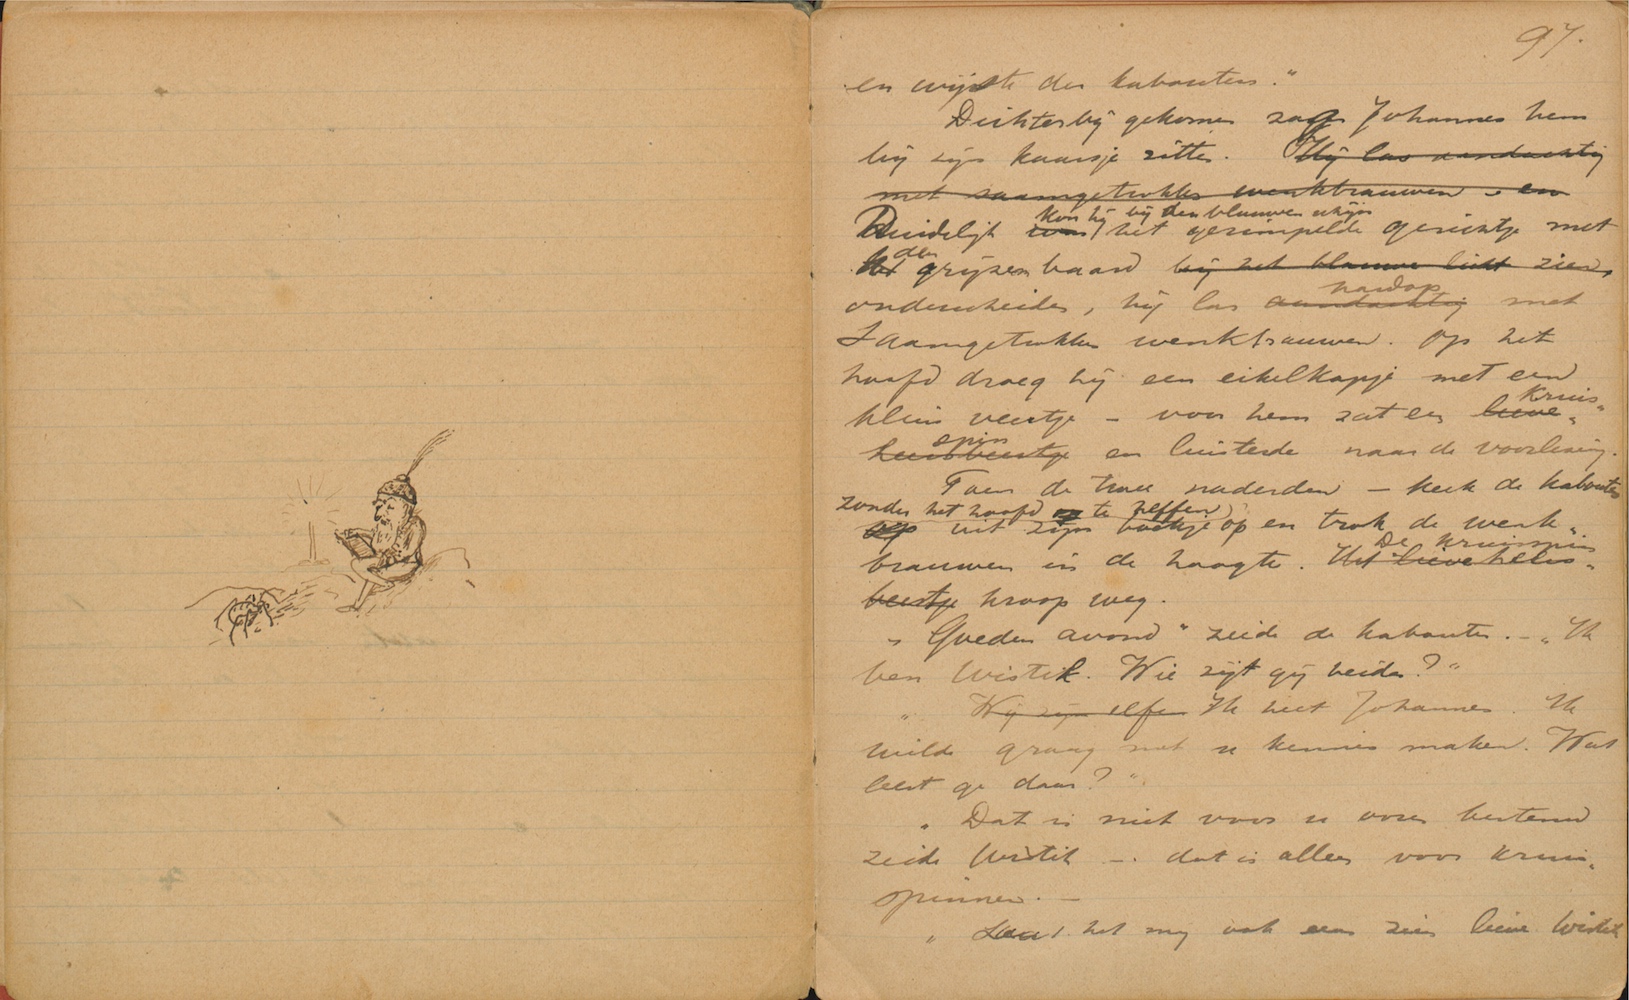 97.
en wijste der kabouters."
Dichterbij gekomen zag Johannes hem
bij zijn kaarsje zitten. Hij las aandachtig
met saamgetrokken wenkbrauwen en
kon hij bij den blauwen schijn
Duidelijk was het gerimpelde gezichtje met
den
het grijzen baard bij het blauwe licht zien,
hardop
onderscheiden, hij las aandachtig met
Saamgetrokken wenkbrauwen. Op het
hoofd droeg hij een eikelkapje met een
kruis-
klein veertje – voor hem zat een lieve-
spin
heersbeestje en luisterde naar de voorlezing.
Toen de twee naderden – keek de kabouter
zonder het hoofd op te heffen,
op uit zijn boekje op en trok de wenk-
De kruisspin
brauwen in de hoogte. Het lieveheers-
beestje kroop weg.
„Goeden avond" zeide de kabouter. – „Ik
ben Wistik. Wie zijt gij beiden?"
„ Wij zijn elfen Ik heet Johannes. Ik
wilde graag met u kennis maken. Wat
leest ge daar?"
„Dat is niet voor u ooren bestemd
zeide Wistik –. dat is alleen voor kruis-
spinnen. –
„ Laat het mij ook eens zien lieve Wistik